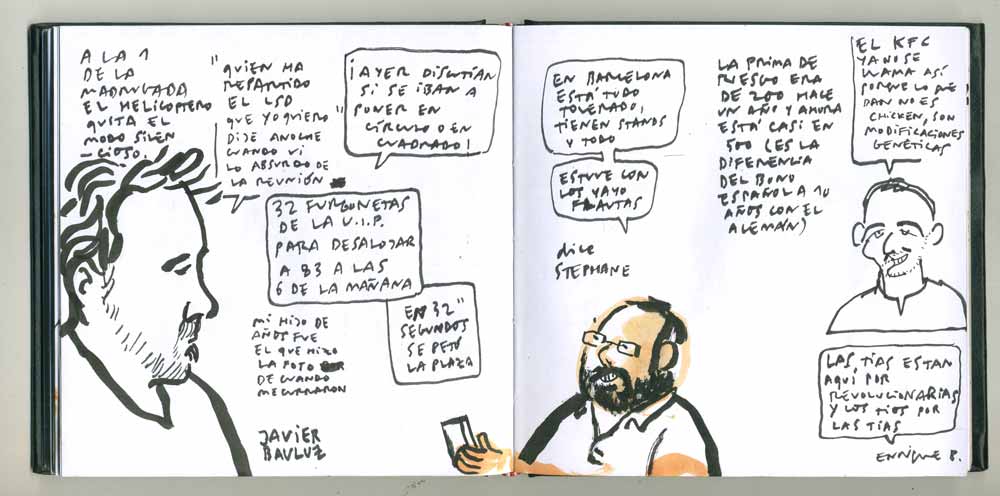 A LA 1
DE LA
MADRUGADA
EL HELICOPTERO
QUITA EL
MODO SILEN
-CIOSO.
"QUIEN HA
REPARTIDO
EL LSD
QUE YO QUIERO"
DIJE ANOCHE
CUANDO VI
LO ABSURDO DE
LA REUNIÓN
¡AYER DISCUTIAN
SI SE IBAN A
PONER EN
CÍRCULO O EN
CUADRADO!
32 FURGONETAS
DE LA U.I.P.
PARA DESALOJAR
A 83 A LAS
6 DE LA MAÑANA
EN 32"
SEGUNDOS
SE PETÓ
LA PLAZA
MI HIJO DE
AÑOS FUE
EL QUE HIZO
LA FOTO
DE CUANDO
ME CURRARON
JAVIER
BAULUZ
EN BARCELONA
ESTÁ TODO
TOLERADO,
TIENEN STANDS
Y TODO
ESTUVE CON
LOS YAYO
FLAUTAS
dice
STEPHANE
LA PRIMA DE
RIESGO ERA
DE 200 HACE
UN AÑO Y AHORA
ESTÁ CASI EN
500 (ES LA
DIFERENCIA
DEL BONO
ESPAÑOL A 10
AÑOS CON EL
ALEMÁN)
EL KFC
YA NO SE
LLAMA ASÍ
PORQUE LO QUE
DAN NO ES
CHICKEN, SON
MODIFICACIONES
GENÉTICAS
LAS TÍAS ESTAN
AQUI POR
REVOLUCIONARIAS
Y LOS TIOS POR
LAS TÍAS
ENRIQUE B.